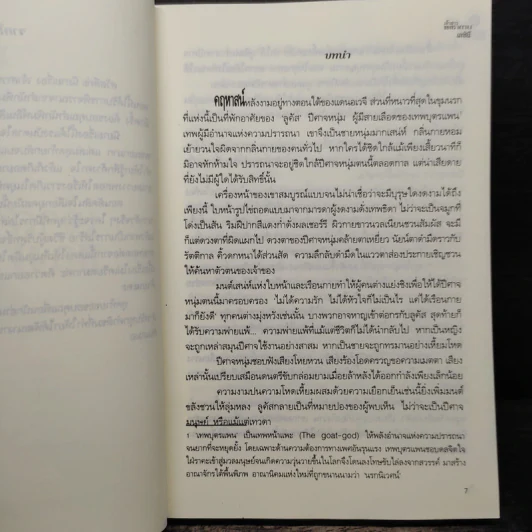 บทนำ
คฤหาสน์หลังงามอยู่ทางตอนใต้ของแดนอเวจี ส่วนที่หนาวที่สุดในขุมนรก
ที่แห่งนี้เป็นที่พักอาศัยของ 'ลูคัส' ปีศาจหนุ่ม ผู้มีสายเลือดของเทพบุตรแพน¹
เทพผู้มีอำนาจแห่งความปรารถนา เขาจึงเป็นชายหนุ่มมากเสน่ห์ กลิ่นกายหอม
เย้ายวนใจผิดจากกลิ่นกายของคนทั่วไป หากใครได้ชิดใกล้แม้เพียงเสี้ยวนาทีก็
มิอาจหักห้ามใจ ปรารถนาจะอยู่ชิดใกล้ปีศาจหนุ่มตนนี้ตลอดกาล แต่น่าเสียดาย
ที่ยังไม่มีผู้ใดได้รับสิทธิ์นั้น
เครื่องหน้าของเขาสมบูรณ์แบบจนไม่น่าเชื่อว่าจะมีบุรุษใดงดงามได้ถึง
เพียงนี้ ใบหน้ารูปไข่ถอดแบบมาจากมารดาผู้งดงามดั่งเทพธิดา ไม่ว่าจะเป็นจมูกที่
โด่งเป็นสัน ริมฝีปากสีแดงก่ำดั่งผลเชอร์รี ผิวกายขาวนวลเนียนชวนสัมผัส จะมี
ก็แต่ดวงตาที่ผิดแผกไป ดวงตาของปีศาจหนุ่มคล้ายตาเหยี่ยว นัยน์ตาดำมืดราวกับ
รัตติกาล คิ้วดกหนาได้ส่วนสัด ความลึกลับดำมืดในแววตาส่องประกายเชิญชวน
ให้ค้นหาตัวตนของเจ้าของ
มนต์เสน่ห์แห่งใบหน้าและเรือนกายทำให้ผู้คนต่างแย่งชิงเพื่อให้ได้ปีศาจ
หนุ่มตนนี้มาครอบครอง 'ไม่ได้ความรัก ไม่ได้หัวใจก็ไม่เป็นไร แต่ได้เรือนกาย
มาก็ยังดี' ทุกคนต่างมุ่งหวังเช่นนั้น บางพวกอาจหาญเข้าต่อกรกับลูคัส สุดท้ายก็
ได้รับความพ่ายแพ้... ความพ่ายแพ้ที่แม้แต่ชีวิตก็ไม่ได้นำกลับไป หากเป็นหญิง
จะถูกเหล่าสมุนปีศาจใช้งานอย่างสาสม หากเป็นชายจะถูกทรมานอย่างเหี้ยมโหด
ปีศาจหนุ่มชอบฟังเสียงโหยหวน เสียงร้องโอดครวญขอความเมตตา เสียง
เหล่านั้นเปรียบเสมือนดนตรีขับกล่อมยามเมื่อยล้าหลังได้ออกกำลังเพียงเล็กน้อย
ความงามปนความโหดเหี้ยมผสมด้วยความเยือกเย็นเช่นนี้ยิ่งเพิ่มมนต์
ขลังชวนให้ลุ่มหลง ลูคัสกลายเป็นที่หมายปองของผู้พบเห็น ไม่ว่าจะเป็นปีศาจ
มนุษย์ หรือแม้แต่เทวดา
1 'เทพบุตรแพน' เป็นเทพหน้าแพะ (The goat-god) ให้พลังอำนาจแห่งความปรารถนา
จนยากที่จะหยุดยั้ง โดยเฉพาะด้านความต้องการทางเพศอันรุนแรง เทพบุตรแพนชอบดลจิตใจ
ใฝ่ราคะเข้าสู่มวลมนุษย์จนเกิดความวุ่นวายขึ้นในโลกจึงโดนลงโทษขับไล่ลงจากสวรรค์ มาสร้าง
อาณาจักรใต้พื้นพิภพ อาณานิคมแห่งใหม่ที่ถูกขนานนามว่า 'นรกนิเวศน์'
7